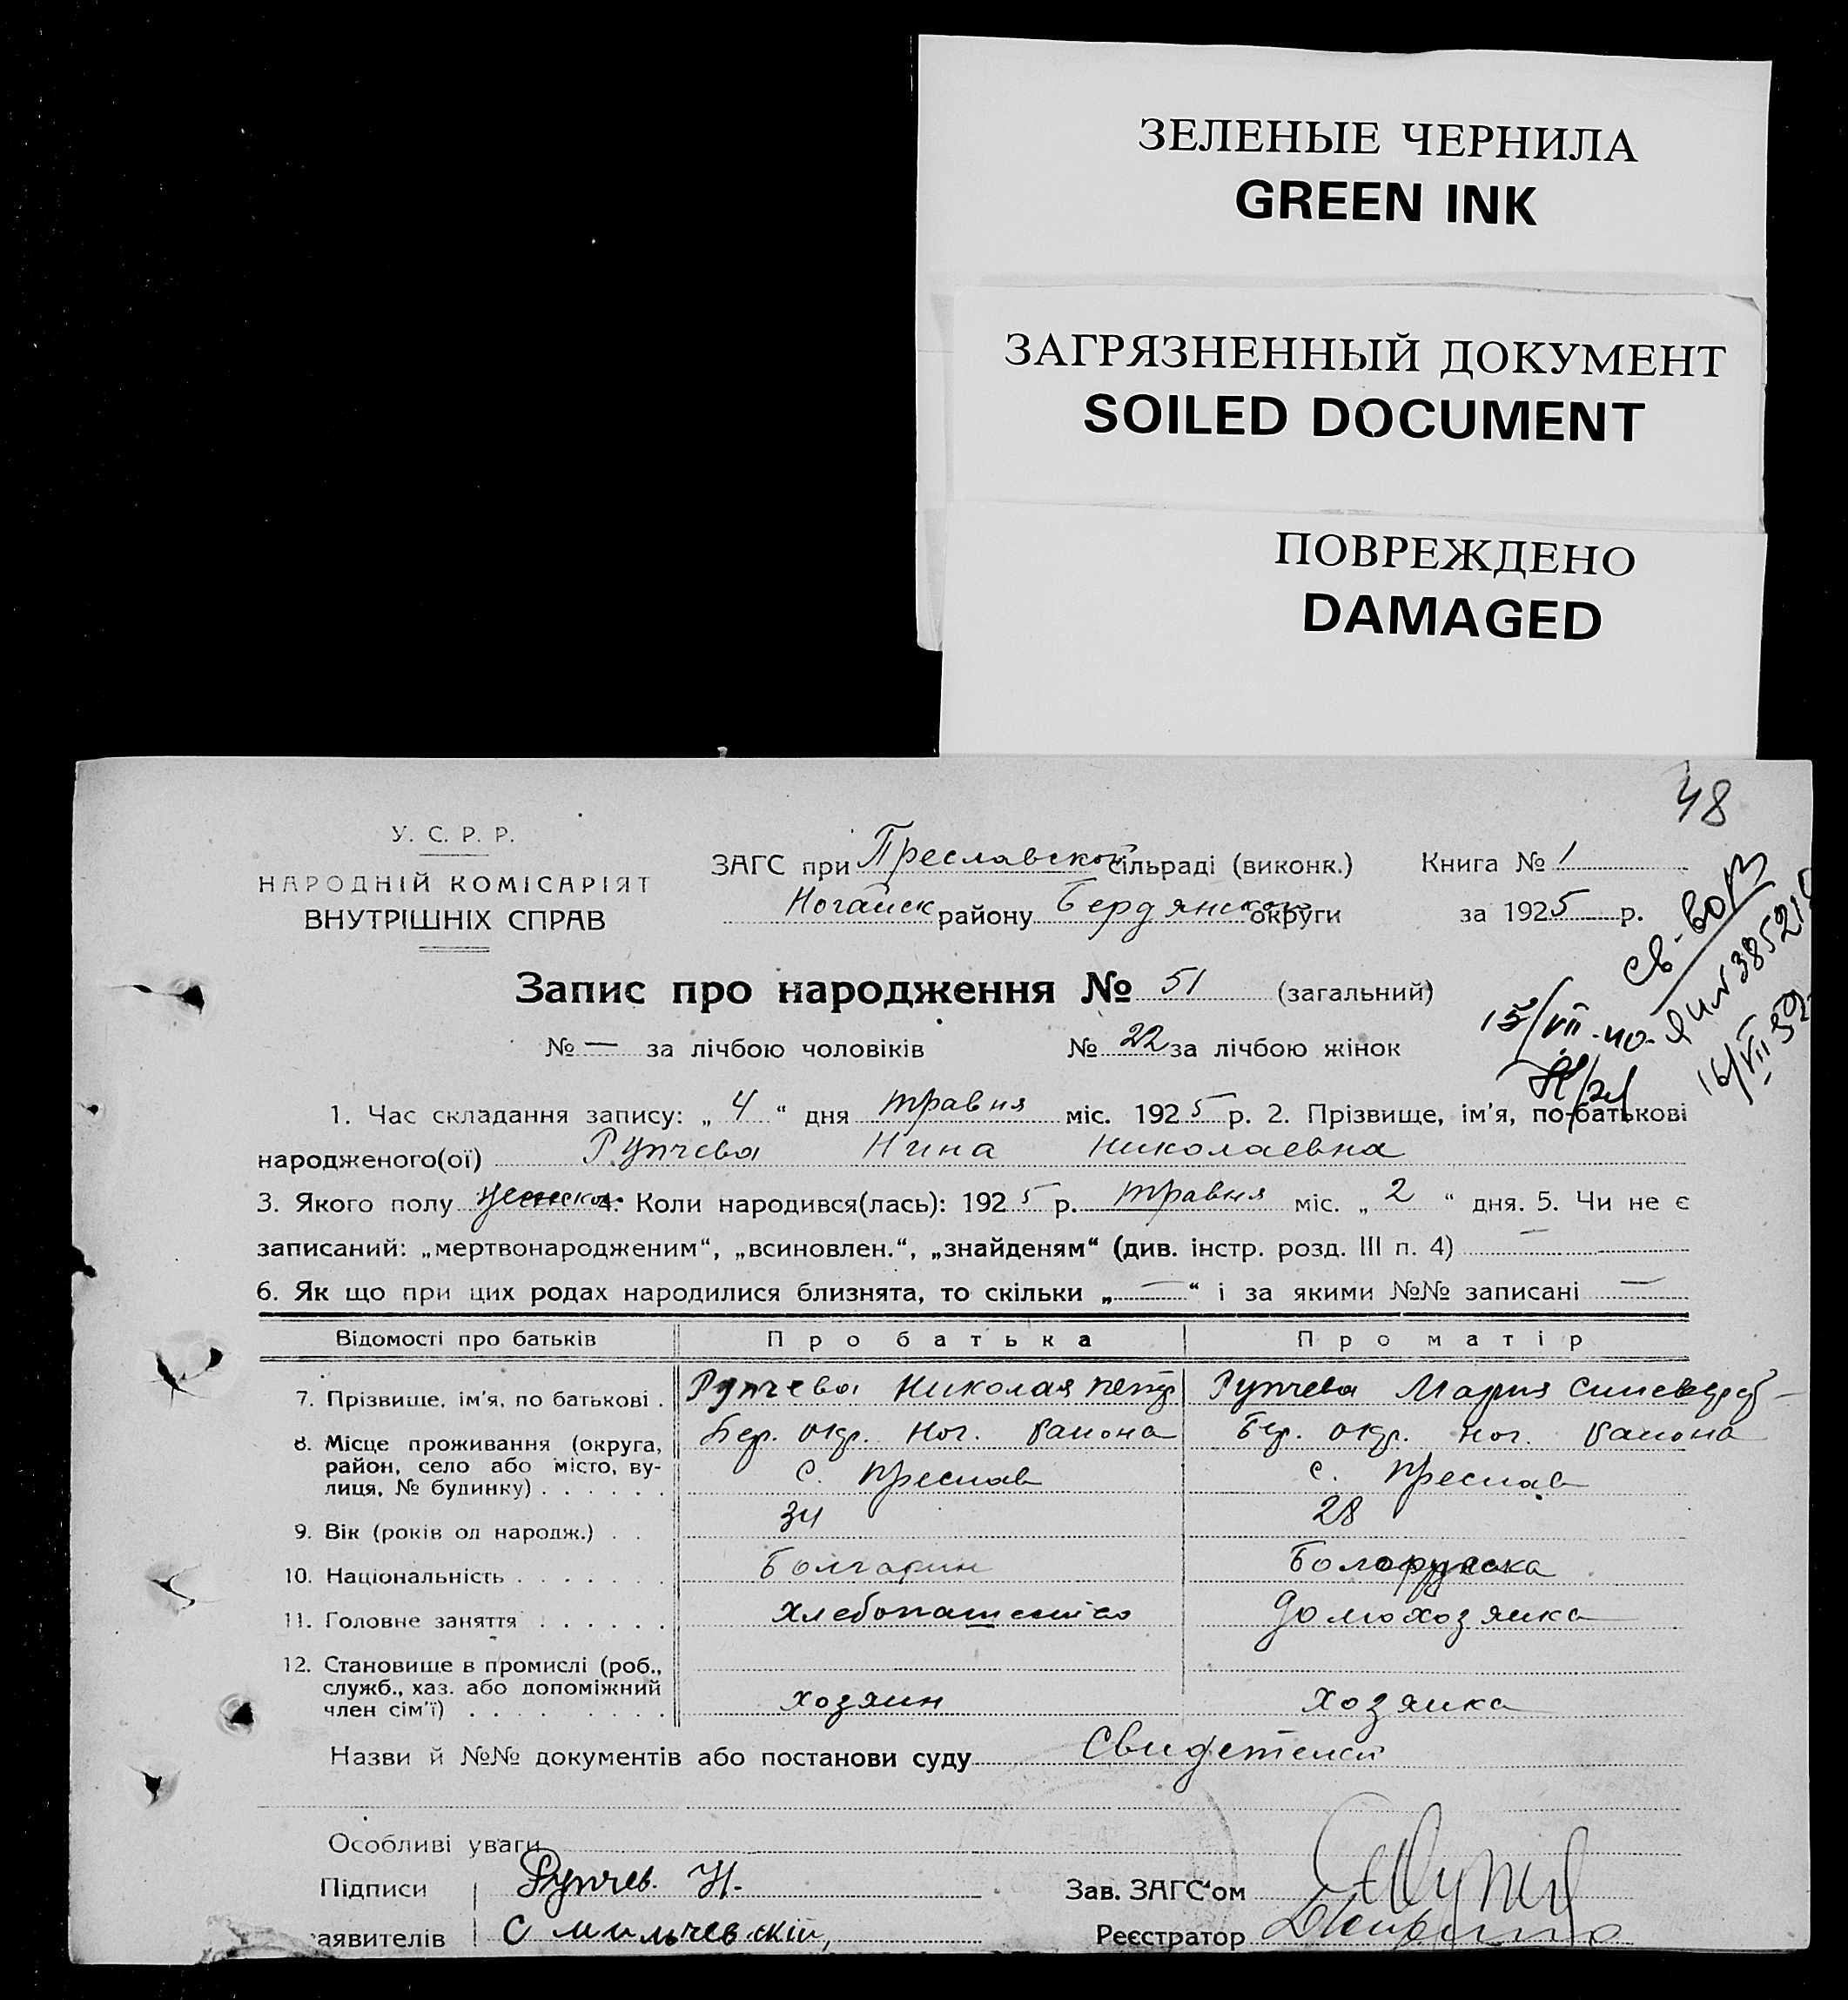 ЗЕЛЕНЫЕ ЧЕРНИЛА
GREEN INK
ЗАГРЯЗНЕННЫЙ ДОКУМЕНТ
SOILED DOCUMENT
ПОВРЕЖДЕНО
DAMAGED
48
У. С. Р. Р.
НАРОДНІЙ КОМІСАРІЯТ
ВНУТРІШНІХ СПРАВ
ЗАГС при Преславской сільраді (виконк.) Книга № 1
Ногайск району Бердянской округи за 1925 р.
Св-во
15/VII-40
16/VII 39
Запис про народження № 51 (загальний)
№ — за лічбою чоловіків № 22 за лічбою жінок
1. Час складання запису: „ 4 “ дня травня міс. 1925 р. 2. Прізвище, ім'я, по-батькові
народженого(ої) Рупчева Нина Николаевна
3. Якого полу женска 4. Коли народився(лась): 1925 р. травня міс. „ 2 “ дня. 5. Чи не є
записаний: „мертвонародженим“, „всиновлен.“, „знайденям“ (див. інстр. розд. III п. 4) —
6. Як що при цих родах народилися близнята, то скільки „ — “ і за якими №№ записані —
Відомості про батьків Про батька Про матір
7. Прізвище, ім'я, по батькові . Рупчева Николая петр Рупчева Мария
8. Місце проживання (округа, Бер. окр. Ног. Района Бер. окр. Ног. Района
район, село або місто, ву-
лиця, № будинку) . . . . . . с. Преслав с. Преслав
9. Вік (років од народж.) . . 34 28
10. Національність . . . . . . . Болгарин Болорузска
11. Головне заняття . . . . . . хлебопашество домохозяика
12. Становище в промислі (роб.,
служб., хаз. або допоміжний
член сім'ї) . . . . . . . . . хозяин хозяика
Назви й №№ документів або постанови суду Свидетелей
Особливі уваги
Підписи Рупчев. Н. Зав. ЗАГС'ом
заявителів С мильчевскій, Реєстратор